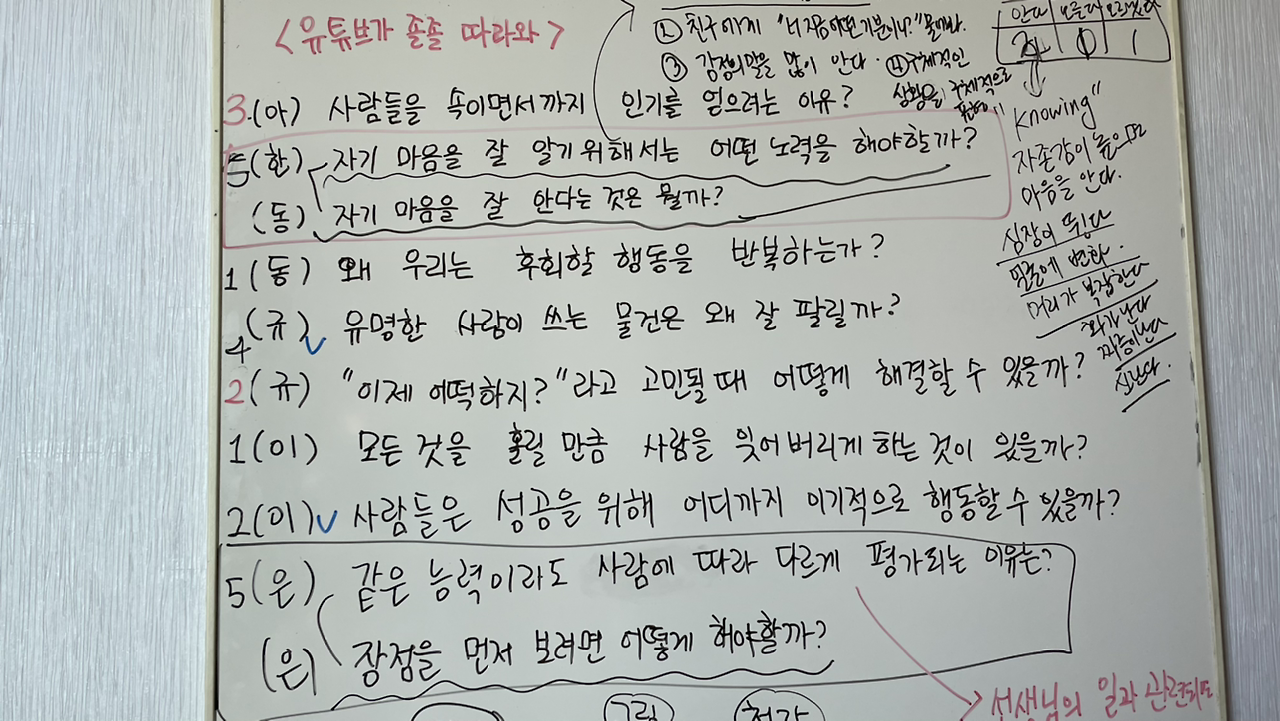 <유튜브가 졸졸 따라와>
② 친구에게 "너 지금 어떤 기분이니?"
③ 감정의 말을 많이 안다. ④ 구체적인
상황을 구체적으로
안다 모른다
2 0 1
3.(아) 사람들을 속이면서까지 인기를 얻으려는 이유?
Knowing"
5(한) 자기 마음을 잘 알기 위해서는 어떤 노력을 해야할까?
자존감이 높으면
마음을 안다.
(동) 자기 마음을 잘 안다는 것은 뭘까?
심장이 뛴다
얼굴에 변화.
머리가 복잡하다
화가난다
짜증이난다
신난다.
1(동) 왜 우리는 후회할 행동을 반복하는가?
4(규) 유명한 사람이 쓰는 물건은 왜 잘 팔릴까?
2(규) "이제 어떡하지?"라고 고민될 때 어떻게 해결할 수 있을까?
1(이) 모든 것을 홀릴 만큼 사람을 잊어버리게 하는 것이 있을까?
2(이) 사람들은 성공을 위해 어디까지 이기적으로 행동할 수 있을까?
5(은) 같은 능력이라도 사람에 따라 다르게 평가되는 이유는?
(은) 장점을 먼저 보려면 어떻게 해야할까?
선생님의 일과 관련되
그림